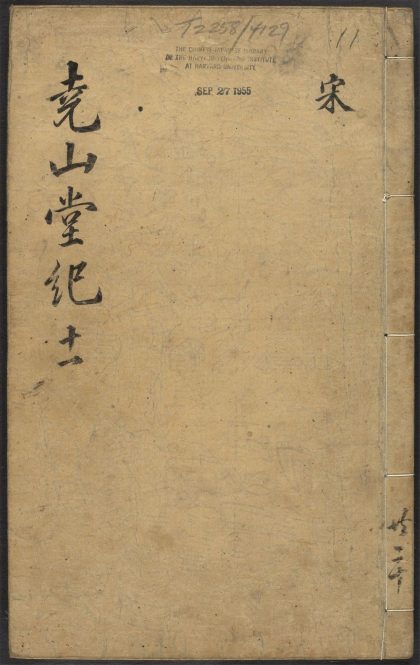 T2258/4129
11
THE CHINESE-JAPANESE LIBRARY
OF THE HARVARD-YENCHING INSTITUTE
AT HARVARD UNIVERSITY
SEP 27 1955
宋
堯山堂紀十一
共二十